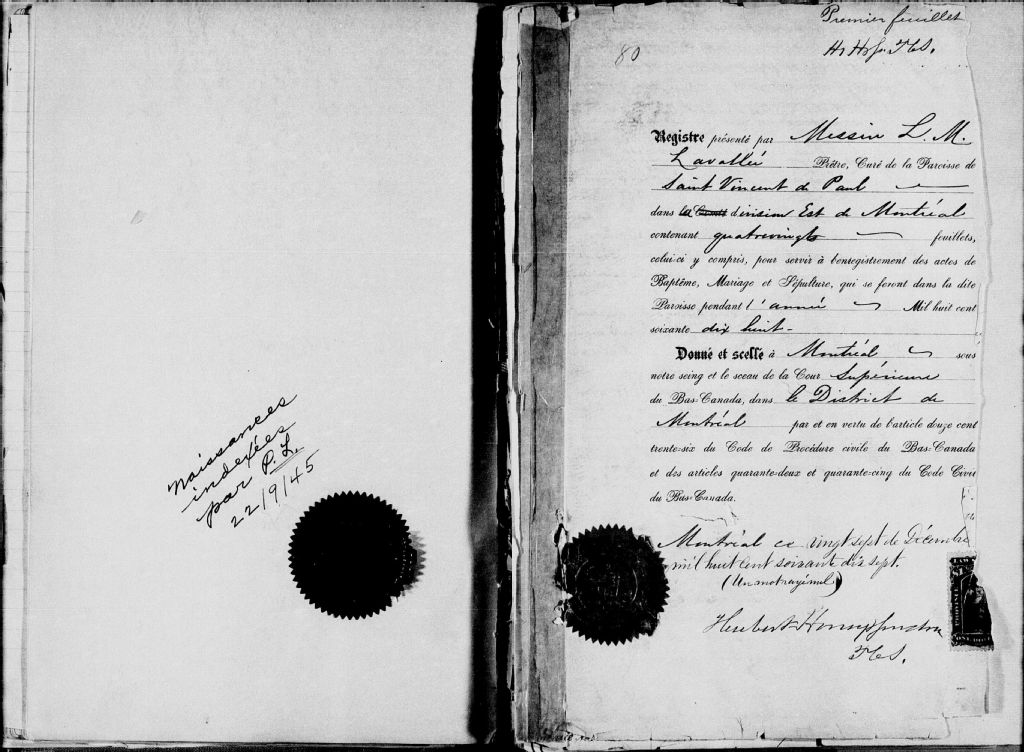 Naissances
indexées
par P. L.
22/9/45
80
Premier feuillet
Registre présenté par Messire L. M.
Lavallée Prêtre, Curé de la Paroisse de
Saint Vincent de Paul
dans la Comté division Est de Montréal
contenant quatrevingts feuillets,
celui-ci y compris, pour servir à l'enregistrement des actes de
Baptême, Mariage et Sépulture, qui se feront dans la dite
Paroisse pendant l'année Mil huit cent
soixante dix huit-
Donné et scellé à Montréal sous
notre seing et le sceau de la Cour Supérieure
du Bas-Canada, dans le District de
Montréal par et en vertu de l'article douze cent
trente-six du Code de Procédure civile du Bas-Canada
et des articles quarante-deux et quarante-cinq du Code Civil
du Bas-Canada.
Montréal ce vingt sept de Décembre
mil huit cent soixante dix sept.
(Un mot rayé nul)